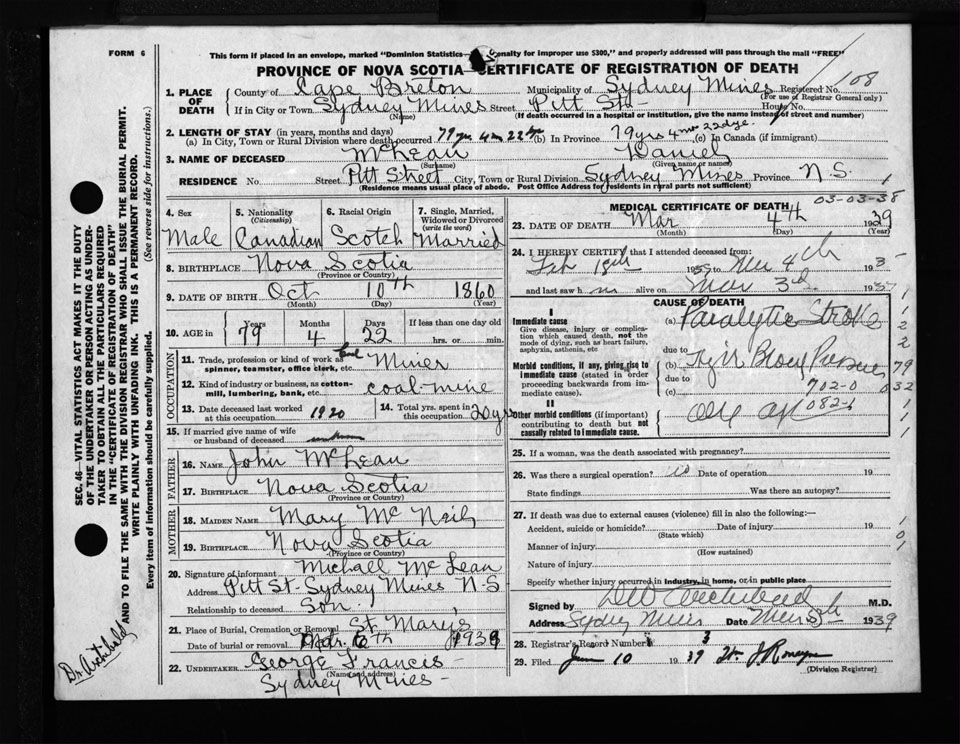 FORM 6
This form if placed in an envelope, marked "Dominion Statistics— enalty for improper use $300," and properly addressed will pass through the mail "FREE"
PROVINCE OF NOVA SCOTIA CERTIFICATE OF REGISTRATION OF DEATH
108
1. PLACE OF DEATH County of Cape Breton Municipality of Sydney Mines Registered No.
(For use of Registrar General only)
If in City or Town Sydney Mines Street Pitt St- House No.
(Name) (If death occurred in a hospital or institution, give the name instead of street and number)
2. LENGTH OF STAY (in years, months and days)
(a) In City, Town or Rural Division where death occurred 79 yrs 4 m 22 dys (b) In Province 79 yrs 4 mos 22 dys. (c) In Canada (if immigrant)
3. NAME OF DECEASED McLean Daniel
(Surname) (Given name or names)
RESIDENCE No. Street Pitt Street City, Town or Rural Division Sydney Mines Province N.S.
(Residence means usual place of abode. Post Office Address for residents in rural parts not sufficient)
03-03-38
4. Sex Male
5. Nationality (Citizenship) Canadian
6. Racial Origin Scotch
7. Single, Married, Widowed or Divorced (write the word) Married
8. BIRTHPLACE Nova Scotia
(Province or Country)
9. DATE OF BIRTH Oct 10th 1860
(Month) (Day) (Year)
10. AGE in Years Months Days If less than one day
79 4 22 hrs. or min.
OCCUPATION
11. Trade, profession or kind of work as spinner, teamster, office clerk, etc. Coal Miner
12. Kind of industry or business, as cotton-mill, lumbering, bank, etc. coal-mine
13. Date deceased last worked at this occupation 1920
14. Total yrs. spent in this occupation 20 yrs
15. If married give name of wife or husband of deceased unknown
FATHER
16. NAME John McLean
17. BIRTHPLACE Nova Scotia
(Province or Country)
MOTHER
18. MAIDEN NAME Mary McNeil
19. BIRTHPLACE Nova Scotia
(Province or Country)
20. Signature of informant Michael McLean
Address Pitt St- Sydney Mines N-S
Relationship to deceased Son.
21. Place of Burial, Cremation or Removal St. Mary's
Date of burial or removal Mar. 6th 1939
22. UNDERTAKER George Francis-
(Name and address)
Sydney Mines-
MEDICAL CERTIFICATE OF DEATH
23. DATE OF DEATH Mar 4th 1939
(Month) (Day) (Year)
24. I HEREBY CERTIFY that I attended deceased from:
Feb 18th 193 to Mar 4th 193
and last saw h m alive on Mar 3rd 193
CAUSE OF DEATH
I
Immediate cause
Give disease, injury or complication which caused death, not the mode of dying, such as heart failure, asphyxia, asthenia, etc
(a) Paralytic Stroke
due to
Morbid conditions, if any, giving rise to immediate cause (stated in order proceeding backwards from immediate cause).
(b) High Blood Pressure
due to
(c) 702-0
II
Other morbid conditions (if important) contributing to death but not causally related to immediate cause.
old age 082-1
1
2
2
79
032
1
1
1
25. If a woman, was the death associated with pregnancy?
26. Was there a surgical operation? no Date of operation 19
State findings Was there an autopsy?
27. If death was due to external causes (violence) fill in also the following:—
Accident, suicide or homicide? Date of injury 19
(State which)
Manner of injury
(How sustained)
Nature of injury
Specify whether injury occurred in industry, in home, or in public place
Signed by Archibald M.D.
Address Sydney Mines Date Mar 1939
28. Registrar's Record Number 3
29. Filed June 10 1939
(Division Registrar)
SEC. 46—VITAL STATISTICS ACT MAKES IT THE DUTY
OF THE UNDERTAKER OR PERSON ACTING AS UNDER-
TAKER TO OBTAIN ALL THE PARTICULARS REQUIRED
IN THE "CERTIFICATE OF REGISTRATION OF DEATH"
AND TO FILE THE SAME WITH THE DIVISION REGISTRAR WHO SHALL ISSUE THE BURIAL PERMIT.
WRITE PLAINLY WITH UNFADING INK. THIS IS A PERMANENT RECORD.
Every item of information should be carefully supplied. (See reverse side for instructions.)
Dr. Archibald